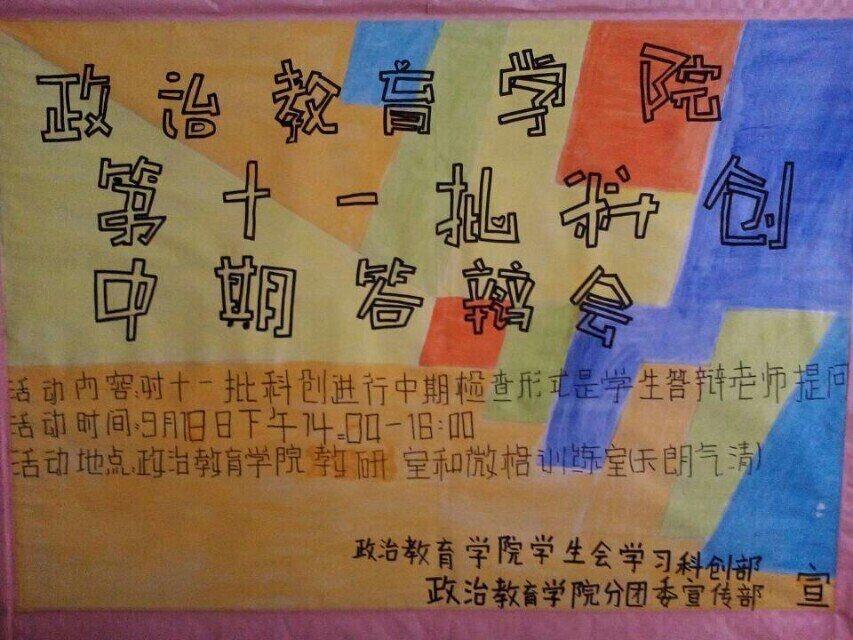 政治教育学院
第十一批科创
中期答辩会
活动内容:对十一批科创进行中期检查形式是学生答辩老师提问
活动时间:9月18日下午14:00-18:00
活动地点:政治教育学院教研室和微格训练室(天朗气清)
政治教育学院学生会学习科创部
政治教育学院分团委宣传部 宣